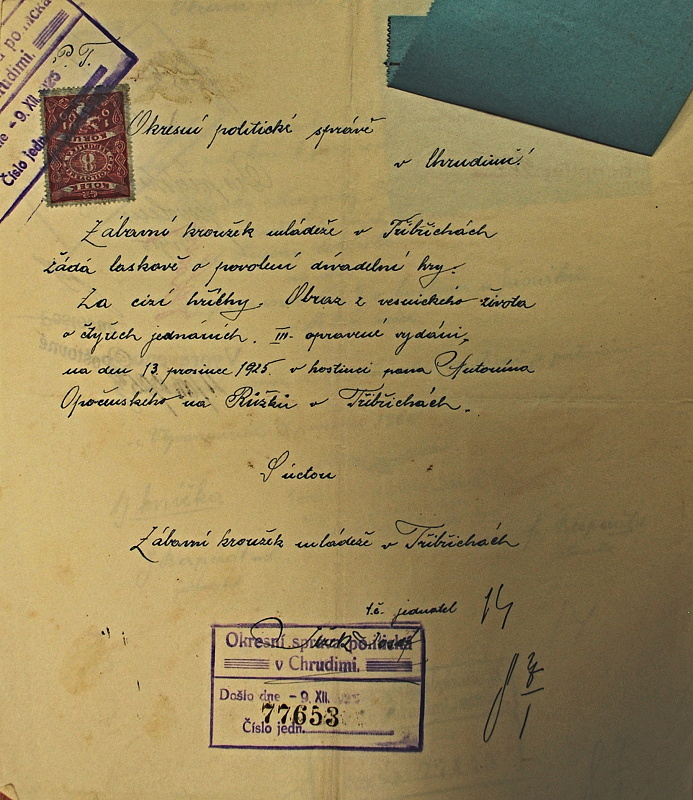 P. T.
Okresní politické správě
v Chrudimi!
Zábavní kroužek mládeže v Třibřichách
žádá laskavě o povolení divadelní hry.
Za cizí hříchy. Obraz z vesnického života
o čtyřech jednáních. III. opravené vydání,
na den 13. prosince 1925. v hostinci pana Antonína
Opočenského na Růžku v Třibřichách.
S úctou
Zábavní kroužek mládeže v Třibřichách
t.č. jednatel
Okresní správa politická
v Chrudimi.
Došlo dne - 9. XII. 1925
77653
Číslo jedn.
- 9. XII. 1925
Číslo jedn.